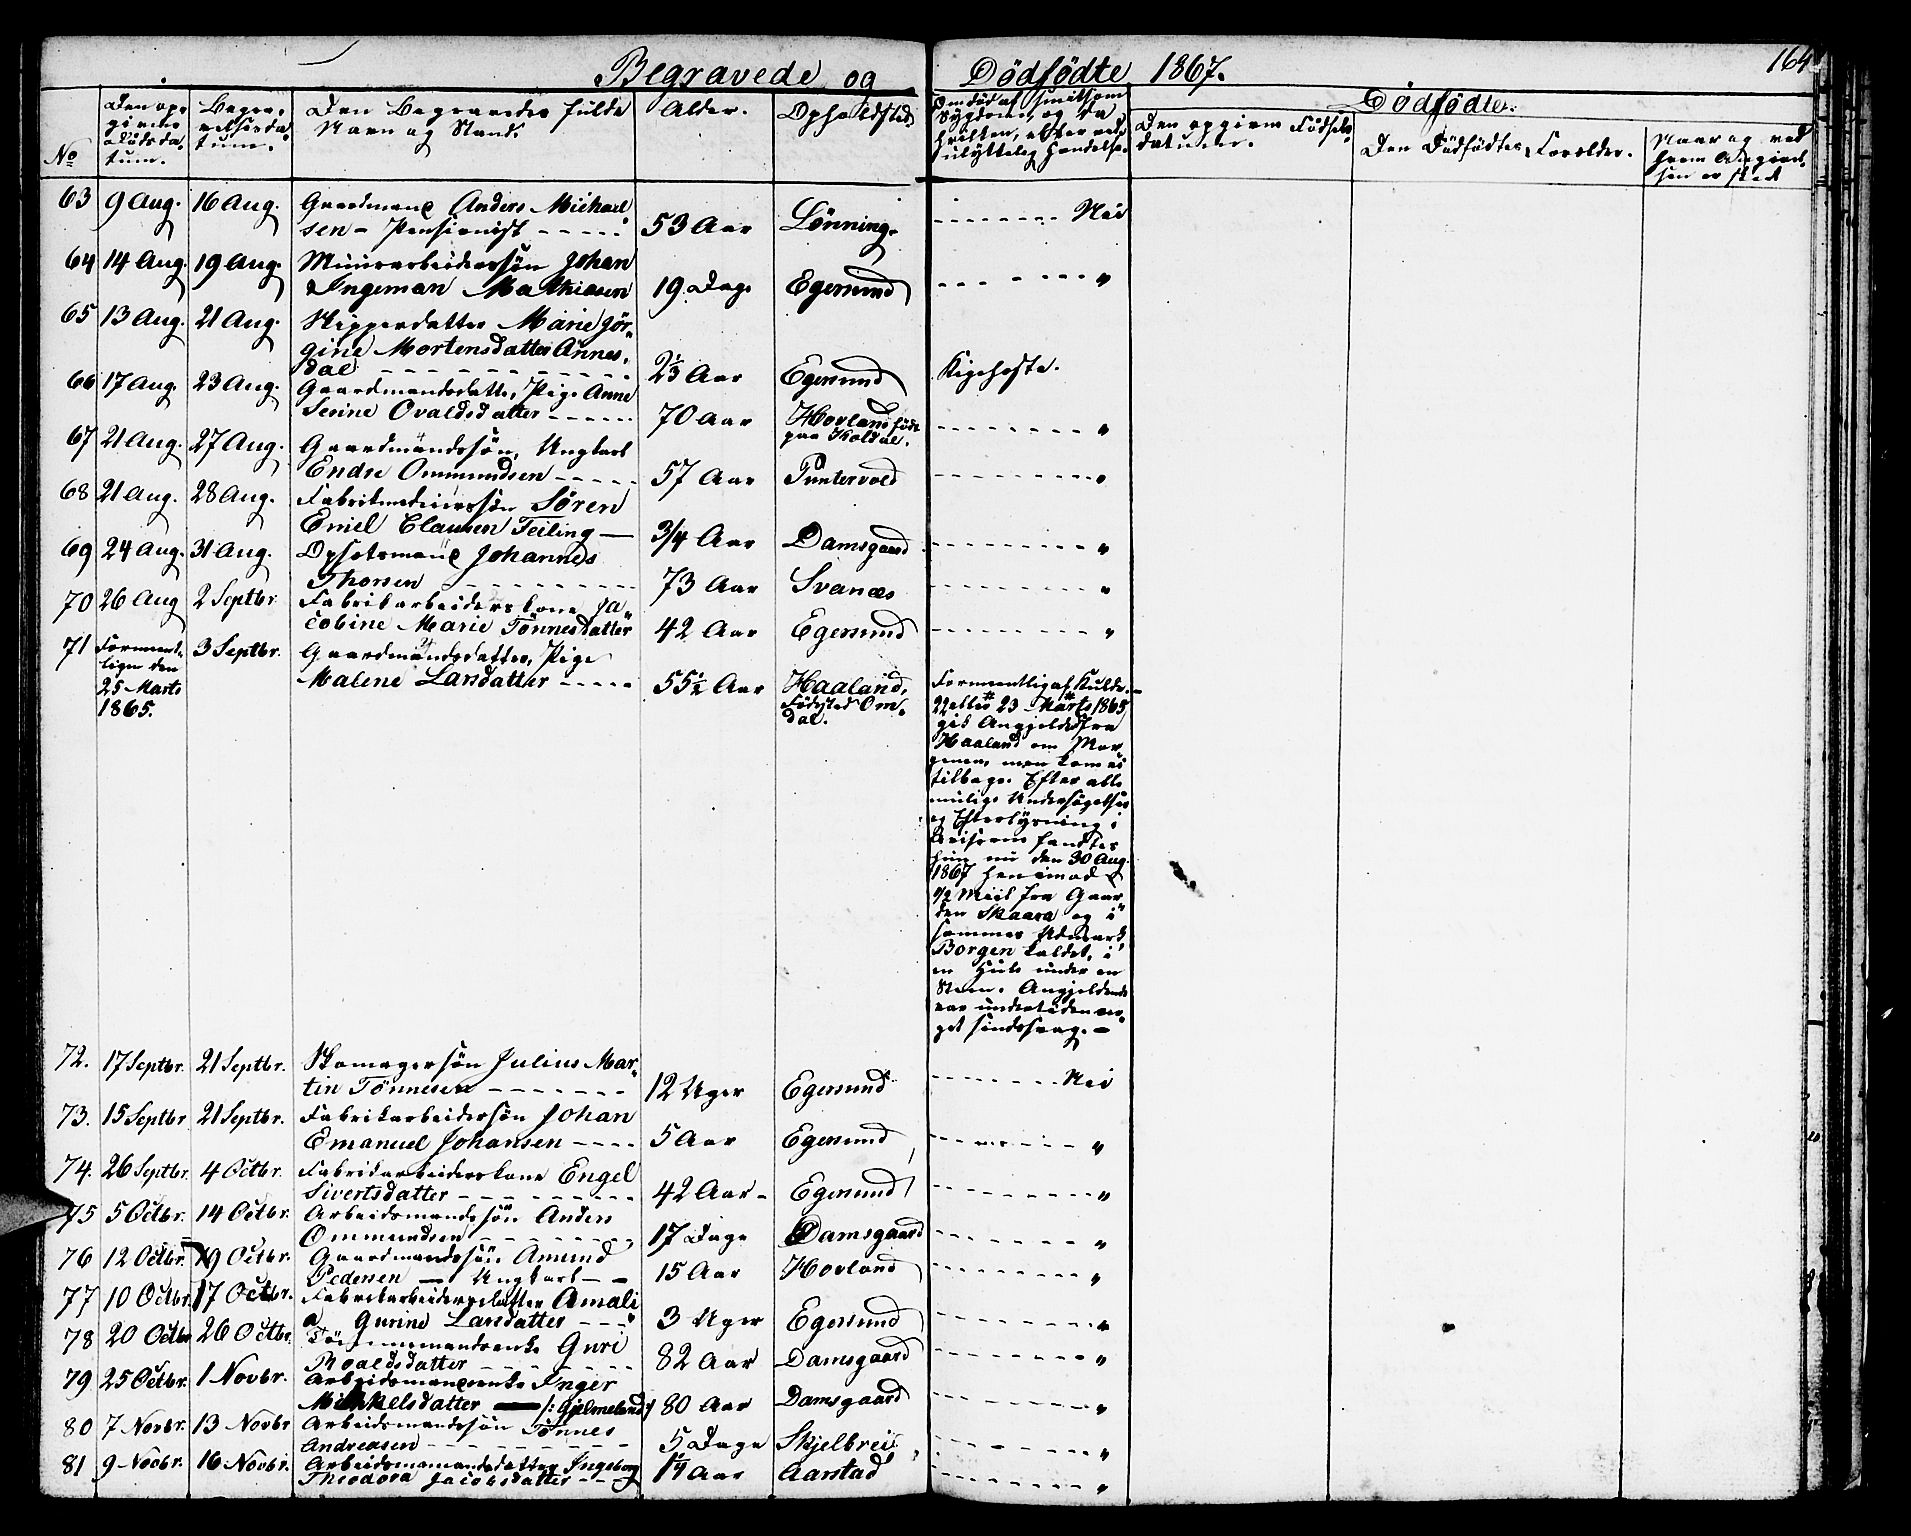 Begravede og Dödfödte 1867.
164
No
Den opgivne Dödsdatum.
Begravelsesdatum.
Den Begravedes fulde Navn og Stand.
Alder.
Opholdsted.
Dödfödte.
Den opgivne Födselsdatum.
Den Dödfödtes Forældre.
Naar og ved hvem Angivelsen er skeet
63 9 Aug. 16 Aug. Gaardmand Anders Michael
sen - Pensionist 53 Aar Lönning. Nei
64 14 Aug. 19 Aug. Muurarbeidersön Johan
Ingeman Mathiasen 19 Dage Egersund "
65 13 Aug. 21 Aug. Skipperdatter Marie Jör
gine Mortensdatter Annes
dal 2⅓ Aar Egersund Kighoste.
66 17 Aug. 23 Aug. Gaardmandsdatter, Pige Anne
Serine Ovaldsdatter 70 Aar Hovland född paa Koldal. "
67 21 Aug. 27 Aug. Gaardmandssön, Ungkarl
Endre Ommundsen 57 Aar Puntervold "
68 21 Aug. 28 Aug. Sören
Emil Clausen Feiling 3/4 Aar Damsgaard "
69 24 Aug. 31 Aug. Opsitsmand Johannes
Thorsen 73 Aar Svanæs "
70 26 Aug 2 Septbr. Fabrikarbeiderskone Ja
cobine Marie Tönnesdatter 42 Aar Egersund "
71 Formentligen den 25 Marts 1865. 3 Septbr. Gaardmandsdatter, Pige
Malene Larsdatter 55½ Aar Haaland, Födested Omdal.
Formentlig af Kulde. -
22 eller 23 Marts 1865
gik Angjeldede fra
Haaland om Mor
genen, men kom ei
tilbage. Efter alle
mulige Undersögelser
og Efterlysning i
Aviserne fandtes
hun nu den 30 Aug.
1867 henimod
1/2 Miil fra Gaar
den Skaara og i
sammes Udmark,
Borgen kaldet, i
en Hule under en
Steen. Angjeldende
var undertiden no
get sindssvag. -
72. 17 Septbr. 21 Septbr. Skomagersön Julius Mar
tin Tönnesen 12 Uger Egersund Nei
73. 15 Septbr 21 Septbr. Fabrikarbeidersön Johan
Emanuel Johansen 5 Aar Egersund "
74. 26 Septbr. 4 Octbr. Fabrikarbeiderskone Engel
Sivertsdatter 42 Aar Egersund "
75 5 Octbr. 14 Octbr. Arbeidsmandssön Anders
Ommundsen 17 Dage Damsgaard "
76 12 Octbr. 19 Octbr. Gaardmandssön Amund
Pedersen - Ungkarl 15 Aar Hovland "
77 10 Octbr. 17 Octbr. Fabrikarbeidersdatter Amali
a Gurine Larsdatter 3 Uger Egersund "
78 20 Octbr 26 Octbr. Guri
Roaldsdatter 82 Aar Damsgaard "
79 25 Octbr. 1 Novbr. Arbeidsmandsenke Inger
Mikkelsdatter /: Gjelmeland 80 Aar Damsgaard "
80 7 Novbr. 13 Novbr Arbeidsmandssön Tönnes
Andreasen 5 Dage Skjelbrei "
81 9 Novbr. 16 Novbr. Arbeidsmandsdatter Ingeborg
Theodora Jacobsdatter 1¼ Aar Aarstad "